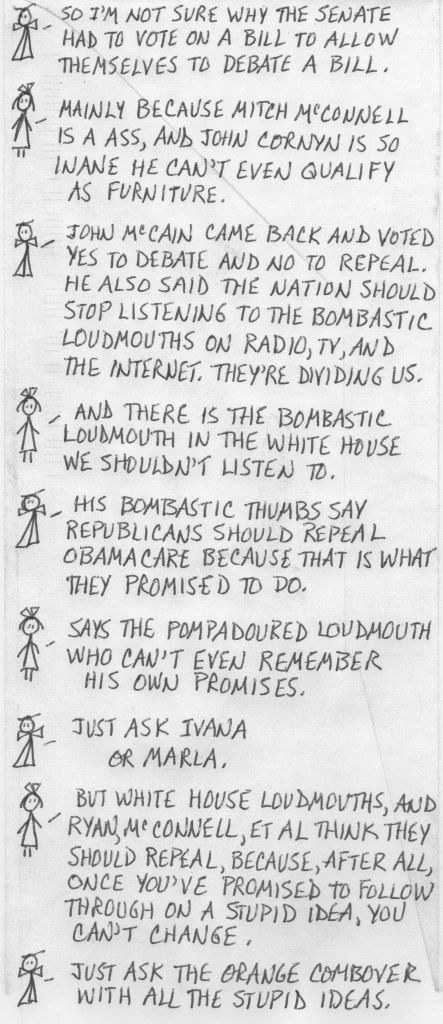 SO I'M NOT SURE WHY THE SENATE
HAD TO VOTE ON A BILL TO ALLOW
THEMSELVES TO DEBATE A BILL.
MAINLY BECAUSE MITCH McCONNELL
IS A ASS, AND JOHN CORNYN IS SO
INANE HE CAN'T EVEN QUALIFY
AS FURNITURE.
JOHN McCAIN CAME BACK AND VOTED
YES TO DEBATE AND NO TO REPEAL.
HE ALSO SAID THE NATION SHOULD
STOP LISTENING TO THE BOMBASTIC
LOUDMOUTHS ON RADIO, TV, AND
THE INTERNET. THEY'RE DIVIDING US.
AND THERE IS THE BOMBASTIC
LOUDMOUTH IN THE WHITE HOUSE
WE SHOULDN'T LISTEN TO.
HIS BOMBASTIC THUMBS SAY
REPUBLICANS SHOULD REPEAL
OBAMACARE BECAUSE THAT IS WHAT
THEY PROMISED TO DO.
SAYS THE POMPADOURED LOUDMOUTH
WHO CAN'T EVEN REMEMBER
HIS OWN PROMISES.
JUST ASK IVANA
OR MARLA.
BUT WHITE HOUSE LOUDMOUTHS, AND
RYAN, McCONNELL, ET AL THINK THEY
SHOULD REPEAL, BECAUSE, AFTER ALL,
ONCE YOU'VE PROMISED TO FOLLOW
THROUGH ON A STUPID IDEA, YOU
CAN'T CHANGE.
JUST ASK THE ORANGE COMBOVER
WITH ALL THE STUPID IDEAS.